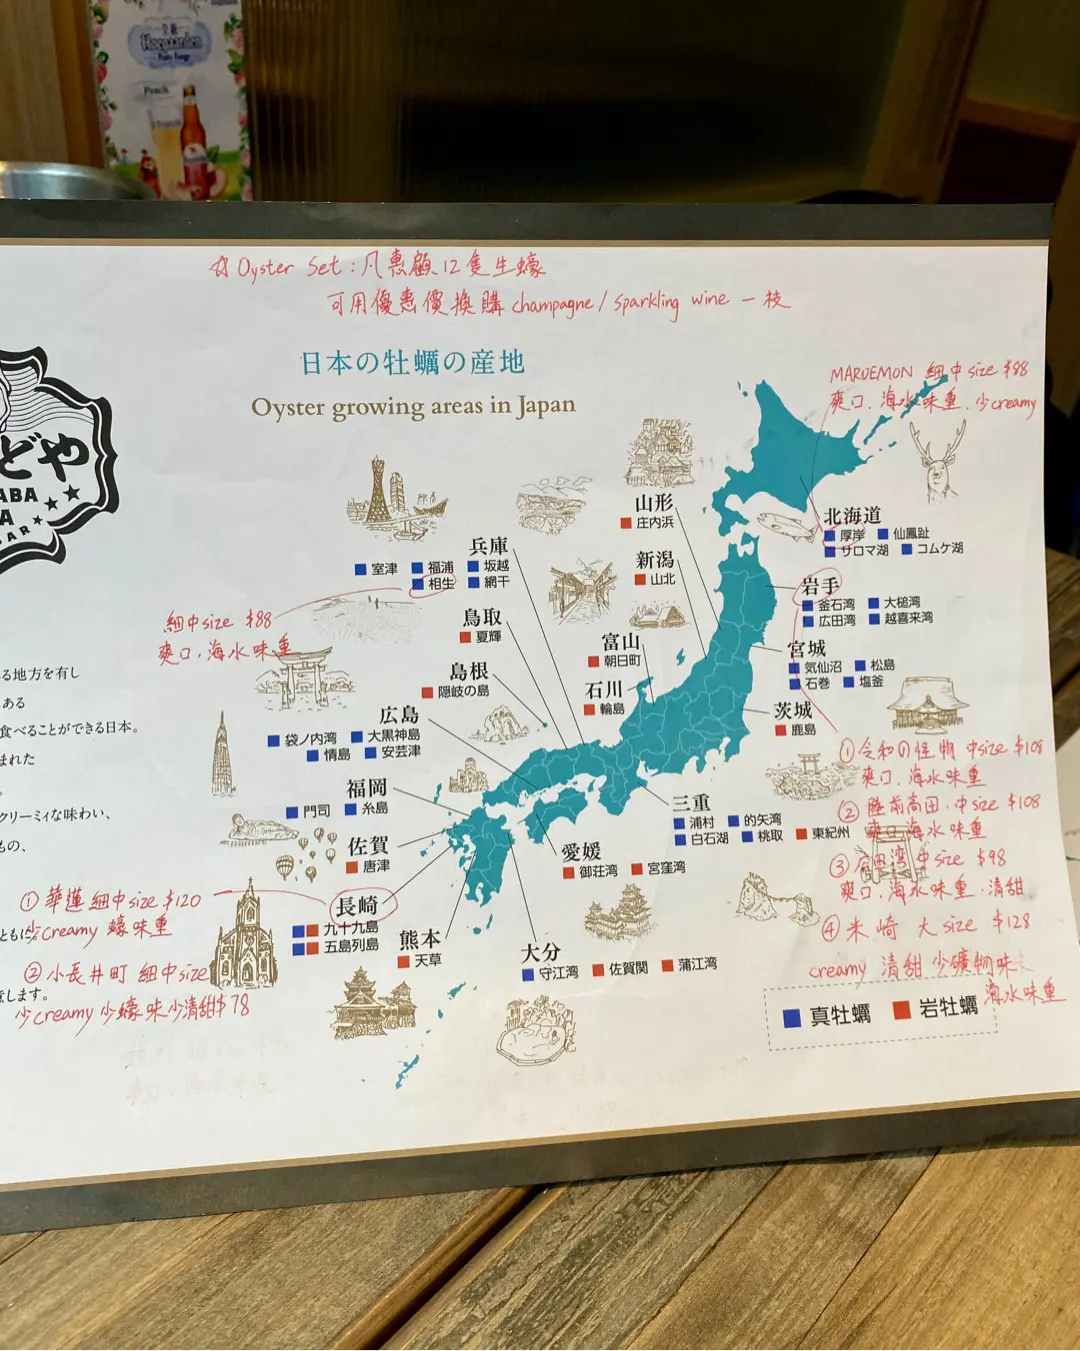 Hoegaarden
Peach
☆ Oyster Set : 凡惠顧12隻生蠔
可用優惠價換購 champagne / sparkling wine 一枝
日本の牡蠣の産地
Oyster growing areas in Japan
どや
ABA
A
BAR
MARUEMON 細中size $88
爽口. 海水味重. 少creamy
北海道
厚岸 仙鳳趾
サロマ湖 コムケ湖
山形
庄内浜
新潟
山北
富山
朝日町
石川
輪島
兵庫
室津 福浦 坂越
相生 網干
細中size $88
爽口. 海水味重
鳥取
夏輝
島根
隠岐の島
広島
袋ノ内湾 大黒神島
情島 安芸津
福岡
門司 糸島
佐賀
唐津
長崎
九十九島
五島列島
熊本
天草
大分
守江湾 佐賀関 蒲江湾
愛媛
御荘湾 宮窪湾
三重
浦村 的矢湾
白石湖 桃取 東紀州
岩手
釜石湾 大槌湾
広田湾 越喜来湾
宮城
気仙沼 松島
石巻 塩釜
茨城
鹿島
① 令和の怪物 中size $108
爽口. 海水味重
② 陸前高田. 中size $108
爽口 海水味重
③ 広田湾 中size $98
爽口. 海水味重. 清甜
④ 米崎 大size $128
creamy 清甜 少礦物味
海水味重
真牡蠣 岩牡蠣
る地方を有し
ある
食べることができる日本。
まれた
クリーミィな味わい、
もの、
ともに
します。
① 華蓮 細中size $120
少creamy 蠔味重
② 小長井町 細中size
少creamy 少蠔味 少清甜 $78